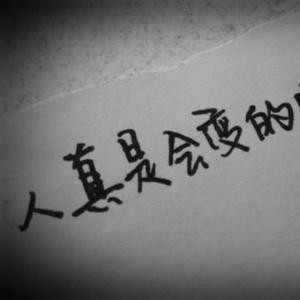 人真是会变的